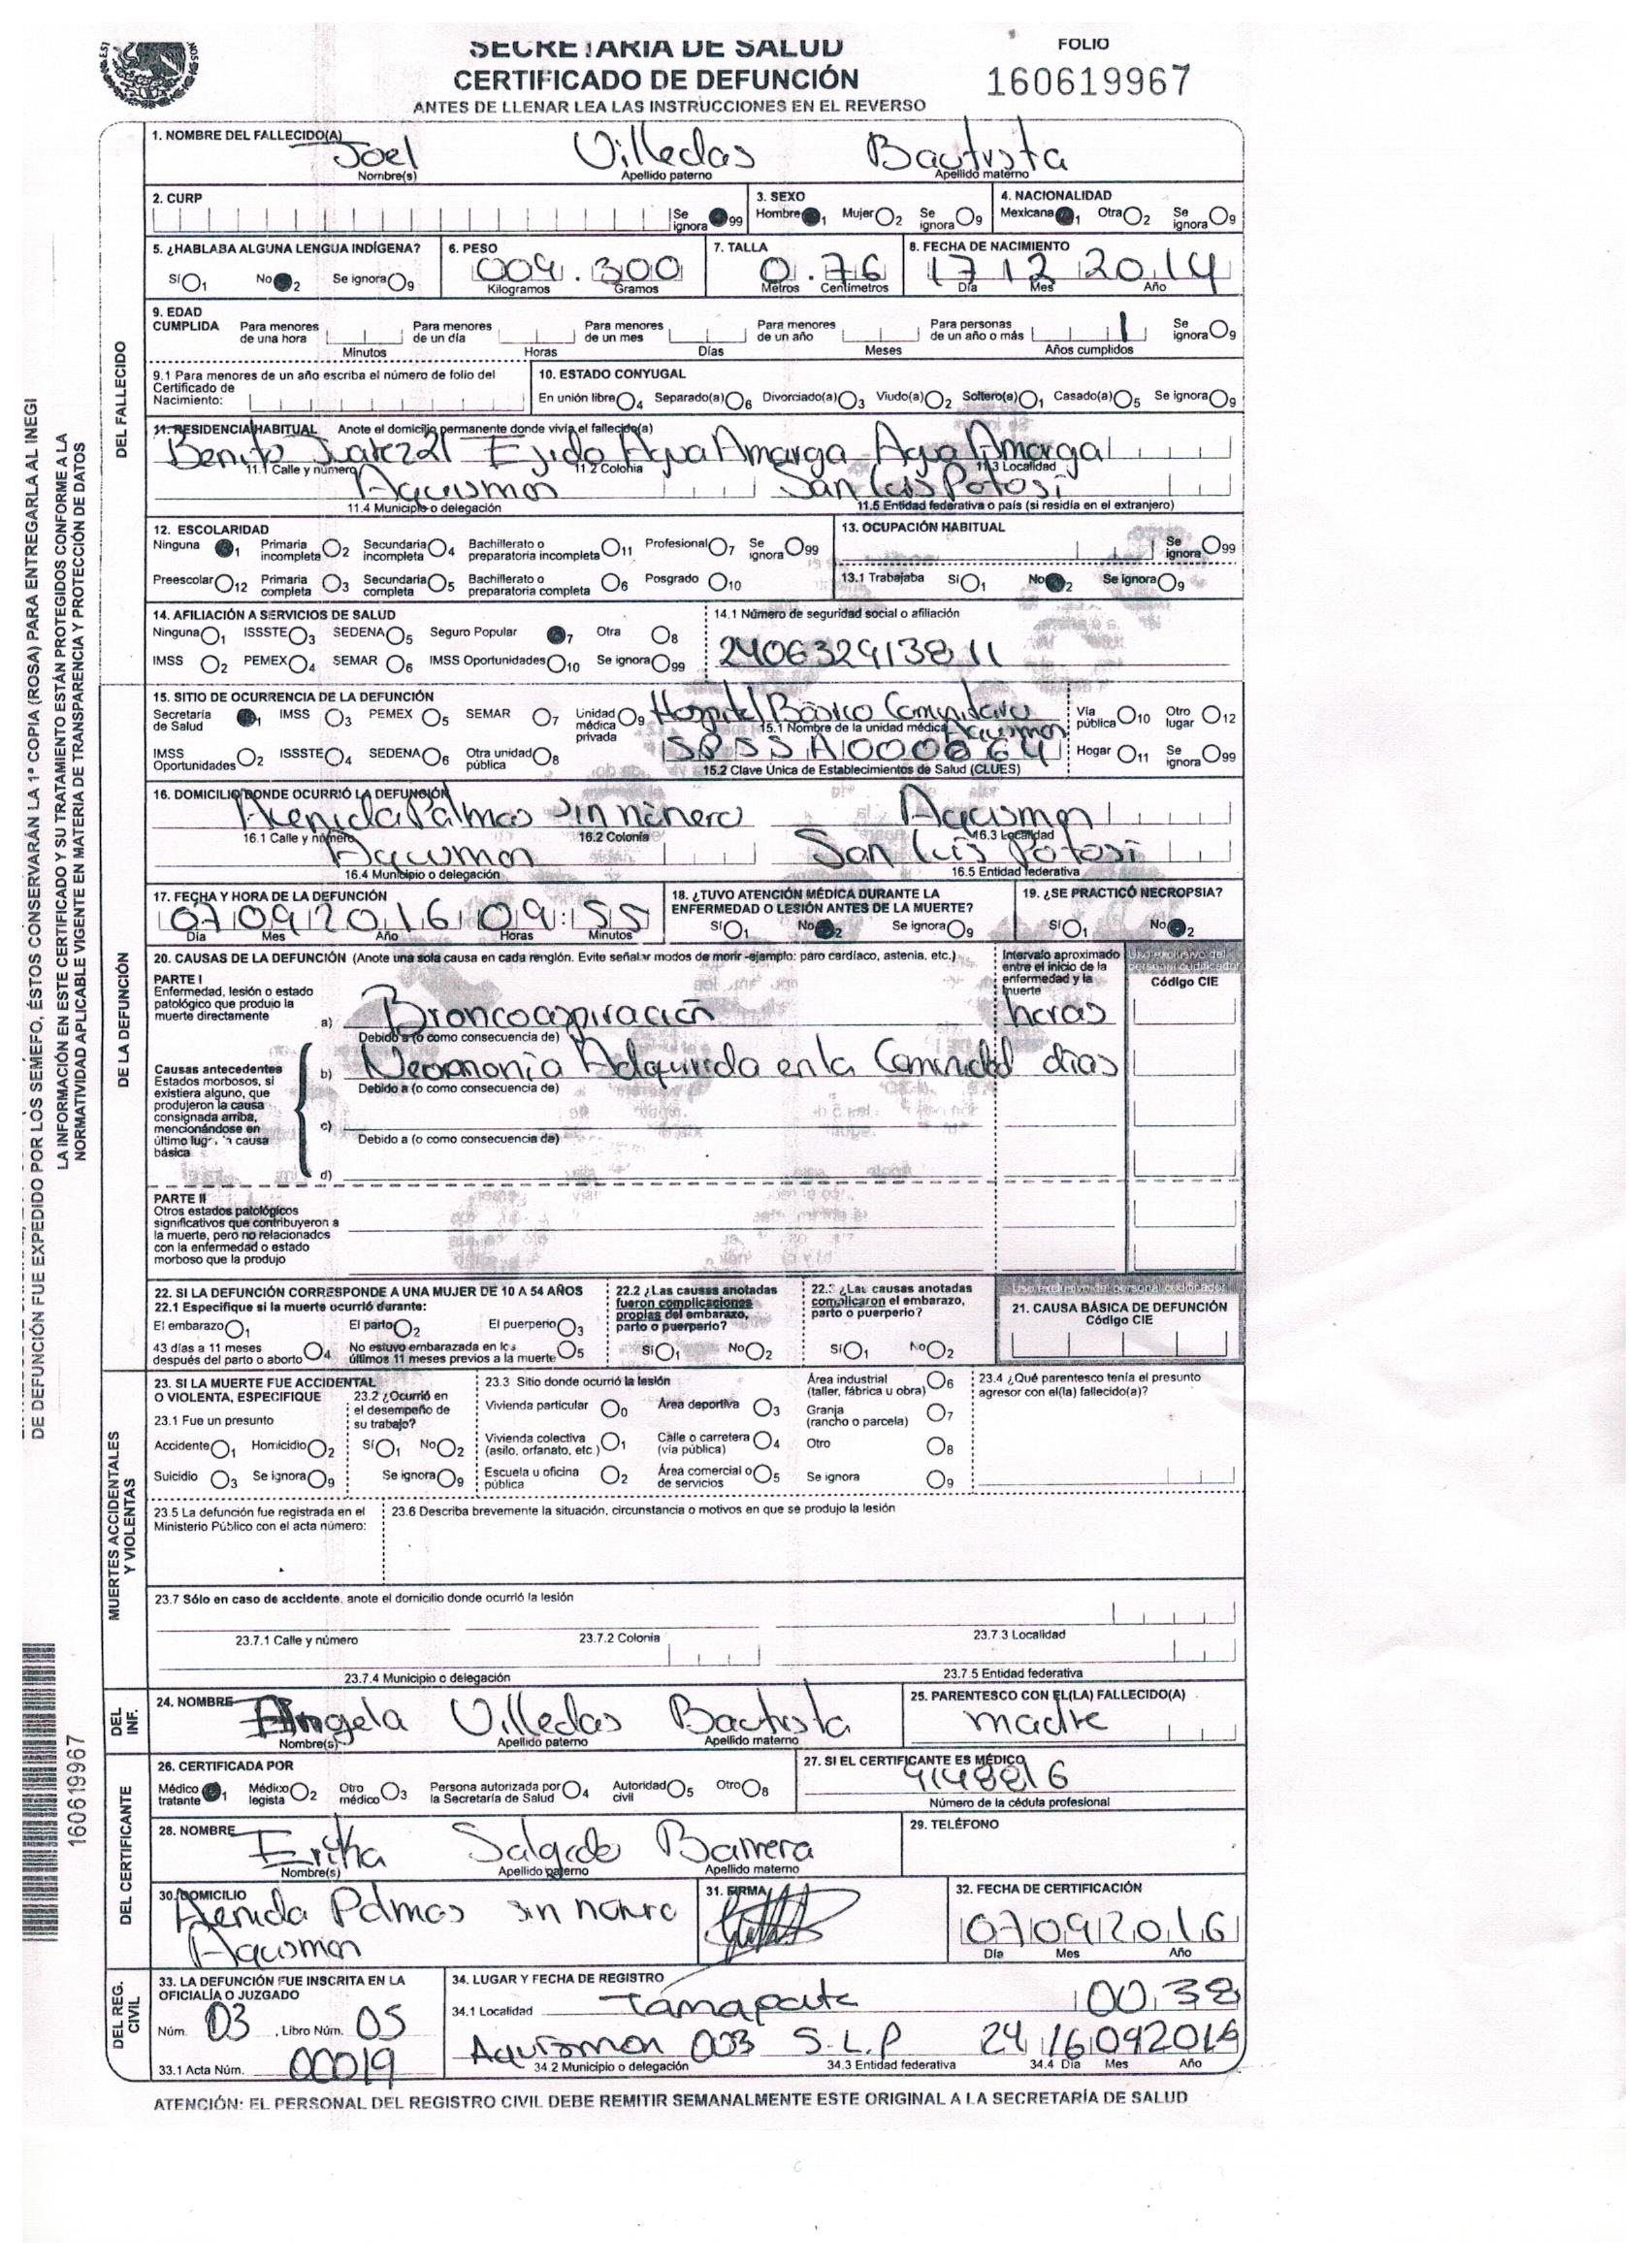 SECRETARIA DE SALUD
CERTIFICADO DE DEFUNCIÓN
ANTES DE LLENAR LEA LAS INSTRUCCIONES EN EL REVERSO
FOLIO
160619967
DEL FALLECIDO
1. NOMBRE DEL FALLECIDO(A)
Joel Villedas Bautista
Nombre(s) Apellido paterno Apellido materno
2. CURP Se ignora 99
3. SEXO Hombre 1 Mujer 2 Se ignora 9
4. NACIONALIDAD Mexicana 1 Otra 2 Se ignora 9
5. ¿HABLABA ALGUNA LENGUA INDÍGENA?
SÍ 1 No 2 Se ignora 9
6. PESO 009.300
Kilogramos Gramos
7. TALLA 0.76
Metros Centímetros
8. FECHA DE NACIMIENTO
17 12 2014
Día Mes Año
9. EDAD CUMPLIDA
Para menores de una hora Minutos
Para menores de un día Horas
Para menores de un mes Días
Para menores de un año Meses
Para personas de un año o más 1 Años cumplidos
Se ignora 9
9.1 Para menores de un año escriba el número de folio del Certificado de Nacimiento:
10. ESTADO CONYUGAL
En unión libre 4 Separado(a) 6 Divorciado(a) 3 Viudo(a) 2 Soltero(a) 1 Casado(a) 5 Se ignora 9
11. RESIDENCIA HABITUAL Anote el domicilio permanente donde vivía el fallecido(a)
Benito Juarez 21 Ejido Agua Amarga Agua Amarga
11.1 Calle y número 11.2 Colonia 11.3 Localidad
Aquismon San Luis Potosi
11.4 Municipio o delegación 11.5 Entidad federativa o país (si residía en el extranjero)
12. ESCOLARIDAD
Ninguna 1 Primaria incompleta 2 Secundaria incompleta 4 Bachillerato o preparatoria incompleta 11 Profesional 7 Se ignora 99
Preescolar 12 Primaria completa 3 Secundaria completa 5 Bachillerato o preparatoria completa 6 Posgrado 10
13. OCUPACIÓN HABITUAL
Se ignora 99
13.1 Trabajaba SÍ 1 No 2 Se ignora 9
14. AFILIACIÓN A SERVICIOS DE SALUD
Ninguna 1 ISSSTE 3 SEDENA 5 Seguro Popular 7 Otra 8
IMSS 2 PEMEX 4 SEMAR 6 IMSS Oportunidades 10 Se ignora 99
14.1 Número de seguridad social o afiliación
2406329138 11
DE LA DEFUNCIÓN
15. SITIO DE OCURRENCIA DE LA DEFUNCIÓN
Secretaría de Salud 1 IMSS 3 PEMEX 5 SEMAR 7 Unidad médica privada 9
IMSS Oportunidades 2 ISSSTE 4 SEDENA 6 Otra unidad pública 8
Hospital Básico Comunitario Aquismon
15.1 Nombre de la unidad médica
15.2 Clave Única de Establecimientos de Salud (CLUES)
Vía pública 10 Otro lugar 12
Hogar 11 Se ignora 99
16. DOMICILIO DONDE OCURRIÓ LA DEFUNCIÓN
Avenida Palmas sin número Aquismon
16.1 Calle y número 16.2 Colonia 16.3 Localidad
Aquismon San Luis Potosi
16.4 Municipio o delegación 16.5 Entidad federativa
17. FECHA Y HORA DE LA DEFUNCIÓN
07 09 2016 09:55
Día Mes Año Horas Minutos
18. ¿TUVO ATENCIÓN MÉDICA DURANTE LA ENFERMEDAD O LESIÓN ANTES DE LA MUERTE?
SÍ 1 No 2 Se ignora 9
19. ¿SE PRACTICÓ NECROPSIA?
SÍ 1 No 2
20. CAUSAS DE LA DEFUNCIÓN (Anote una sola causa en cada renglón. Evite señalar modos de morir -ejemplo: paro cardíaco, astenia, etc.)
Intervalo aproximado entre el inicio de la enfermedad y la muerte
Uso exclusivo del personal codificador
Código CIE
PARTE I
Enfermedad, lesión o estado patológico que produjo la muerte directamente
a) Broncoaspiración horas
Debido a (o como consecuencia de)
Causas antecedentes
Estados morbosos, si existiera alguno, que produjeron la causa consignada arriba, mencionándose en último lugar la causa básica
b) Neumonia Adquirida en la Comunidad dias
Debido a (o como consecuencia de)
c)
Debido a (o como consecuencia de)
d)
PARTE II
Otros estados patológicos significativos que contribuyeron a la muerte, pero no relacionados con la enfermedad o estado morboso que la produjo
22. SI LA DEFUNCIÓN CORRESPONDE A UNA MUJER DE 10 A 54 AÑOS
22.1 Especifique si la muerte ocurrió durante:
El embarazo 1 El parto 2 El puerperio 3
43 días a 11 meses después del parto o aborto 4 No estuvo embarazada en los últimos 11 meses previos a la muerte 5
22.2 ¿Las causas anotadas fueron complicaciones propias del embarazo, parto o puerperio?
SÍ 1 No 2
22.3 ¿Las causas anotadas complicaron el embarazo, parto o puerperio?
SÍ 1 No 2
Uso exclusivo del personal codificador
21. CAUSA BÁSICA DE DEFUNCIÓN
Código CIE
MUERTES ACCIDENTALES Y VIOLENTAS
23. SI LA MUERTE FUE ACCIDENTAL O VIOLENTA, ESPECIFIQUE
23.1 Fue un presunto
Accidente 1 Homicidio 2
Suicidio 3 Se ignora 9
23.2 ¿Ocurrió en el desempeño de su trabajo?
SÍ 1 No 2
Se ignora 9
23.3 Sitio donde ocurrió la lesión
Vivienda particular 0 Área deportiva 3
Vivienda colectiva (asilo, orfanato, etc.) 1 Calle o carretera (vía pública) 4
Escuela u oficina pública 2 Área comercial o de servicios 5
Área industrial (taller, fábrica u obra) 6
Granja (rancho o parcela) 7
Otro 8
Se ignora 9
23.4 ¿Qué parentesco tenía el presunto agresor con el(la) fallecido(a)?
23.5 La defunción fue registrada en el Ministerio Público con el acta número:
23.6 Describa brevemente la situación, circunstancia o motivos en que se produjo la lesión
23.7 Sólo en caso de accidente, anote el domicilio donde ocurrió la lesión
23.7.1 Calle y número 23.7.2 Colonia 23.7.3 Localidad
23.7.4 Municipio o delegación 23.7.5 Entidad federativa
DEL INF.
24. NOMBRE
Angela Villedas Bautista
Nombre(s) Apellido paterno Apellido materno
25. PARENTESCO CON EL(LA) FALLECIDO(A)
madre
DEL CERTIFICANTE
26. CERTIFICADA POR
Médico tratante 1 Médico legista 2 Otro médico 3 Persona autorizada por la Secretaría de Salud 4 Autoridad civil 5 Otro 8
27. SI EL CERTIFICANTE ES MÉDICO
Número de la cédula profesional
28. NOMBRE
Erika Salgado Barrera
Nombre(s) Apellido paterno Apellido materno
29. TELÉFONO
30. DOMICILIO
Avenida Palmas sin número
Aquismon
31. FIRMA
32. FECHA DE CERTIFICACIÓN
07 09 2016
Día Mes Año
DEL REG. CIVIL
33. LA DEFUNCIÓN FUE INSCRITA EN LA OFICIALÍA O JUZGADO
Núm. 03 , Libro Núm. 05
33.1 Acta Núm. 00019
34. LUGAR Y FECHA DE REGISTRO
34.1 Localidad Tamapatz 0038
Aquismon 003 S.L.P 24
34.2 Municipio o delegación 34.3 Entidad federativa 34.4 Día Mes Año
ATENCIÓN: EL PERSONAL DEL REGISTRO CIVIL DEBE REMITIR SEMANALMENTE ESTE ORIGINAL A LA SECRETARÍA DE SALUD
DE DEFUNCIÓN FUE EXPEDIDO POR LOS SEMEFO, ÉSTOS CONSERVARÁN LA 1ª COPIA (ROSA) PARA ENTREGARLA AL INEGI
LA INFORMACIÓN EN ESTE CERTIFICADO Y SU TRATAMIENTO ESTÁN PROTEGIDOS CONFORME A LA
NORMATIVIDAD APLICABLE VIGENTE EN MATERIA DE TRANSPARENCIA Y PROTECCIÓN DE DATOS
160619967